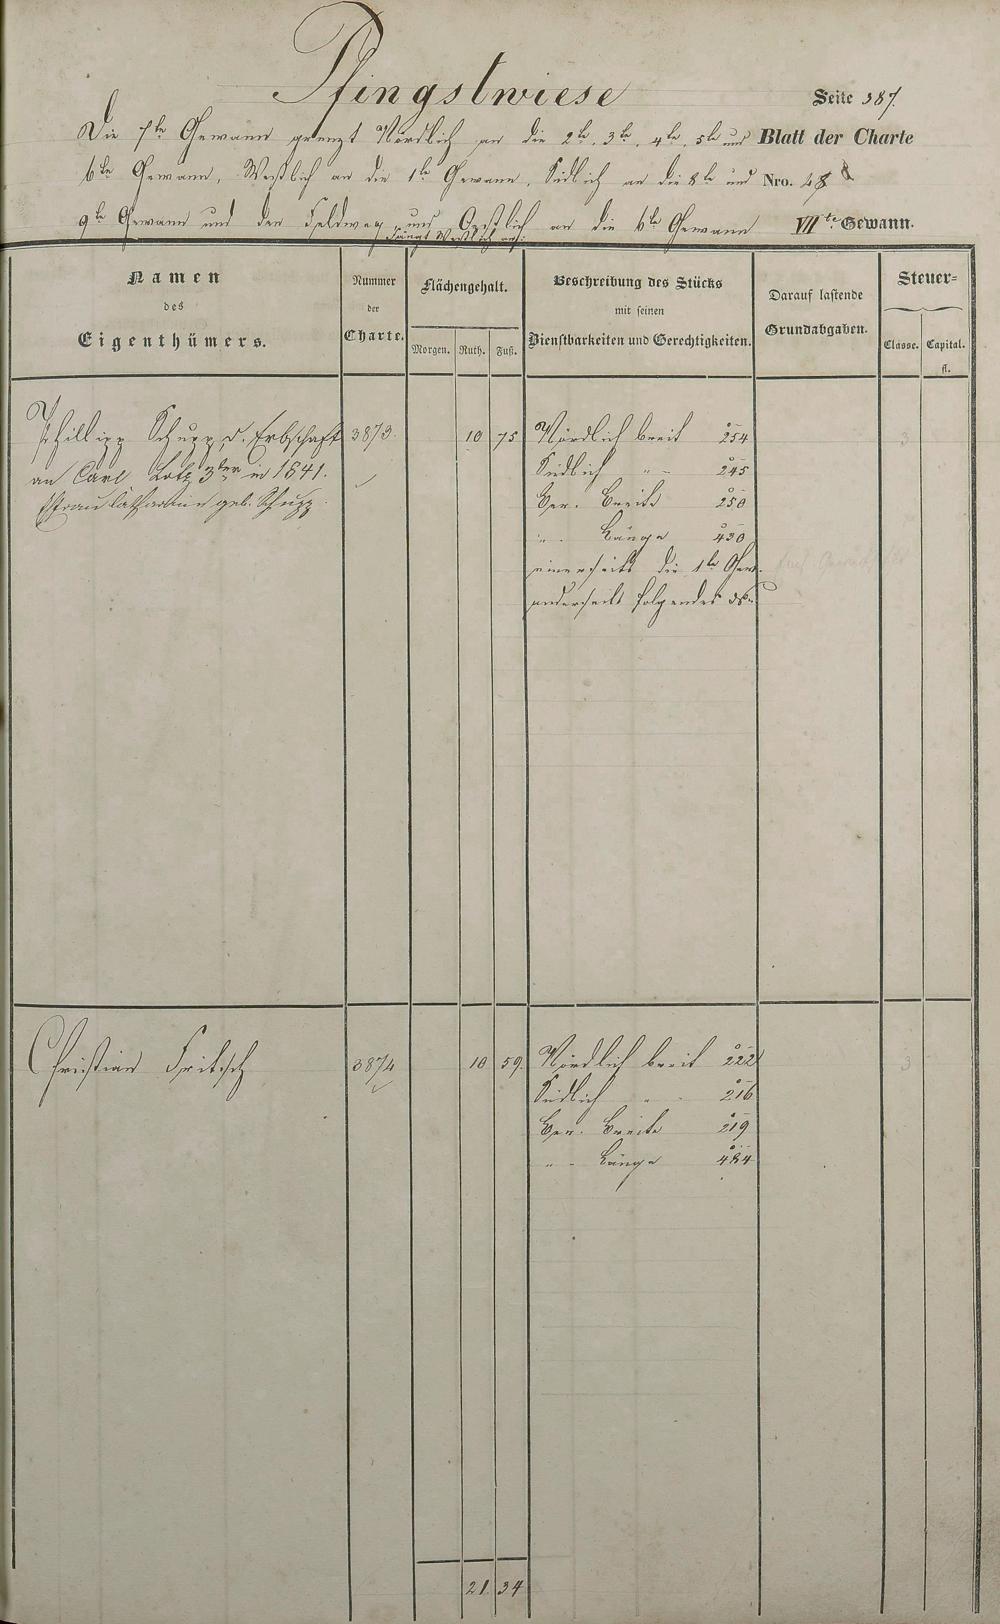 Pfingstwiese
Seite 387.
Die 7te Gewann grenzt Nördlich an die 2te, 3te, 4te, 5te und
Blatt der Charte
6te Gewann, Westlich an die 1te Gewann, Südlich an die 8te und
Nro. 48
9te Gewann und den Feldweg und Oestlich an die 6te Gewann
VIIte Gewann.
Fängt Westlich an:
Namen
des
Eigenthümers.
Nummer
der
Charte.
Flächengehalt.
Morgen. Ruth. Fuß.
Beschreibung des Stücks
mit seinen
Dienstbarkeiten und Gerechtigkeiten.
Darauf lastende
Grundabgaben.
Steuer=
Classe. Capital.
fl.
Phillipp Schupp, d. Erbschaft 3873. 10 75 Nördlich breit 254 3
an Carl Lotz 3ter in 1841. Südlich " - 245
Frau Catharina geb. Schupp. Ger. Breite 250
" - Länge 430
einerseits die 1te Gew.
anderseits folgendes
Christian Fritsch 3874 10 59. Nördlich breit 222 3
Südlich " - 216
Ger. Breite 219
" - Länge 484
21 34